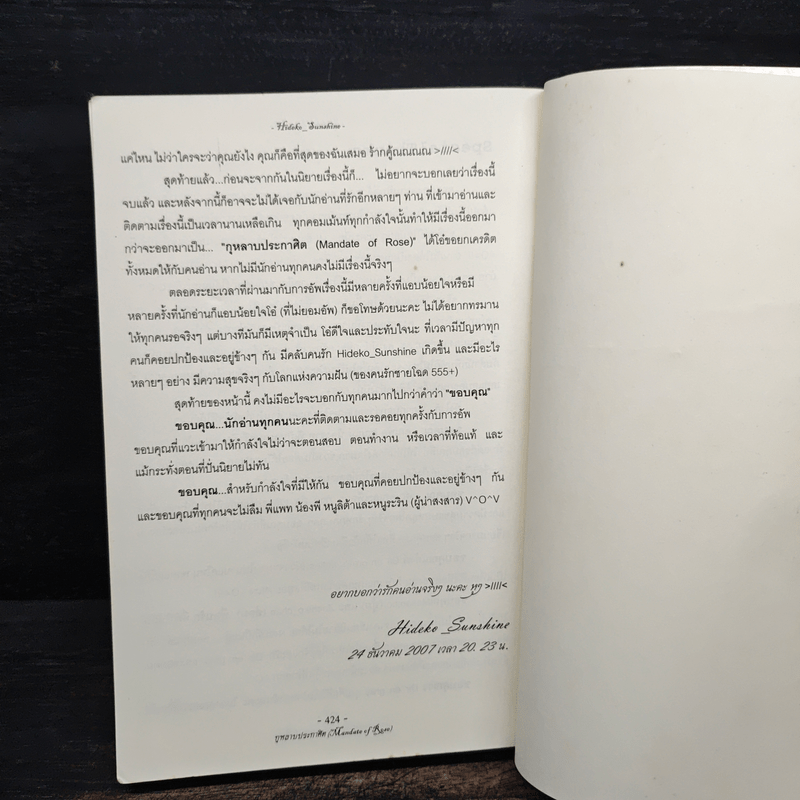 - Hideko_Sunshine -
แค่ไหน ไม่ว่าใครจะว่าคุณยังไง คุณก็คือที่สุดของฉันเสมอ ร้ากคู้ณณณณ >////<
สุดท้ายแล้ว...ก่อนจะจากกันในนิยายเรื่องนี้ก็... ไม่อยากจะบอกเลยว่าเรื่องนี้
จบแล้ว และหลังจากนี้ก็อาจจะไม่ได้เจอกับนักอ่านที่รักอีกหลายๆ ท่าน ที่เข้ามาอ่านและ
ติดตามเรื่องนี้เป็นเวลานานเหลือเกิน ทุกคอมเม้นท์ทุกกำลังใจนั้นทำให้มีเรื่องนี้ออกมา
กว่าจะออกมาเป็น... "กุหลาบประกาศิต (Mandate of Rose)" ได้โอ๋ขอยกเครดิต
ทั้งหมดให้กับคนอ่าน หากไม่มีนักอ่านทุกคนคงไม่มีเรื่องนี้จริงๆ
ตลอดระยะเวลาที่ผ่านมากับการอัพเรื่องนี้มีหลายครั้งที่แอบน้อยใจหรือมี
หลายครั้งที่นักอ่านก็แอบน้อยใจโอ๋ (ที่ไม่ยอมอัพ) ก็ขอโทษด้วยนะคะ ไม่ได้อยากทรมาน
ให้ทุกคนรอจริงๆ แต่บางทีมันก็มีเหตุจำเป็น โอ๋ดีใจและประทับใจนะ ที่เวลามีปัญหาทุก
คนก็คอยปกป้องและอยู่ข้างๆ กัน มีคลับคนรัก Hideko_Sunshine เกิดขึ้น และมีอะไร
หลายๆ อย่าง มีความสุขจริงๆ กับโลกแห่งความฝัน (ของคนรักชายโฉด 555+)
สุดท้ายของหน้านี้ คงไม่มีอะไรจะบอกกับทุกคนมากไปกว่าคำว่า "ขอบคุณ"
ขอบคุณ...นักอ่านทุกคนนะคะที่ติดตามและรอคอยทุกครั้งกับการอัพ
ขอบคุณที่แวะเข้ามาให้กำลังใจไม่ว่าจะตอนสอบ ตอนทำงาน หรือเวลาที่ท้อแท้ และ
แม้กระทั่งตอนที่ปั่นนิยายไม่ทัน
ขอบคุณ...สำหรับกำลังใจที่มีให้กัน ขอบคุณที่คอยปกป้องและอยู่ข้างๆ กัน
และขอบคุณที่ทุกคนจะไม่ลืม พี่แพท น้องพี หนูลิต้าและหนูระริน (ผู้น่าสงสาร) V^O^V
อยากบอกว่ารักคนอ่านจริงๆ นะคะ หุๆ >////<
Hideko_Sunshine
24 ธันวาคม 2007 เวลา 20. 23 น.
- 424 -
กุหลาบประกาศิต (Mandate of Rose)